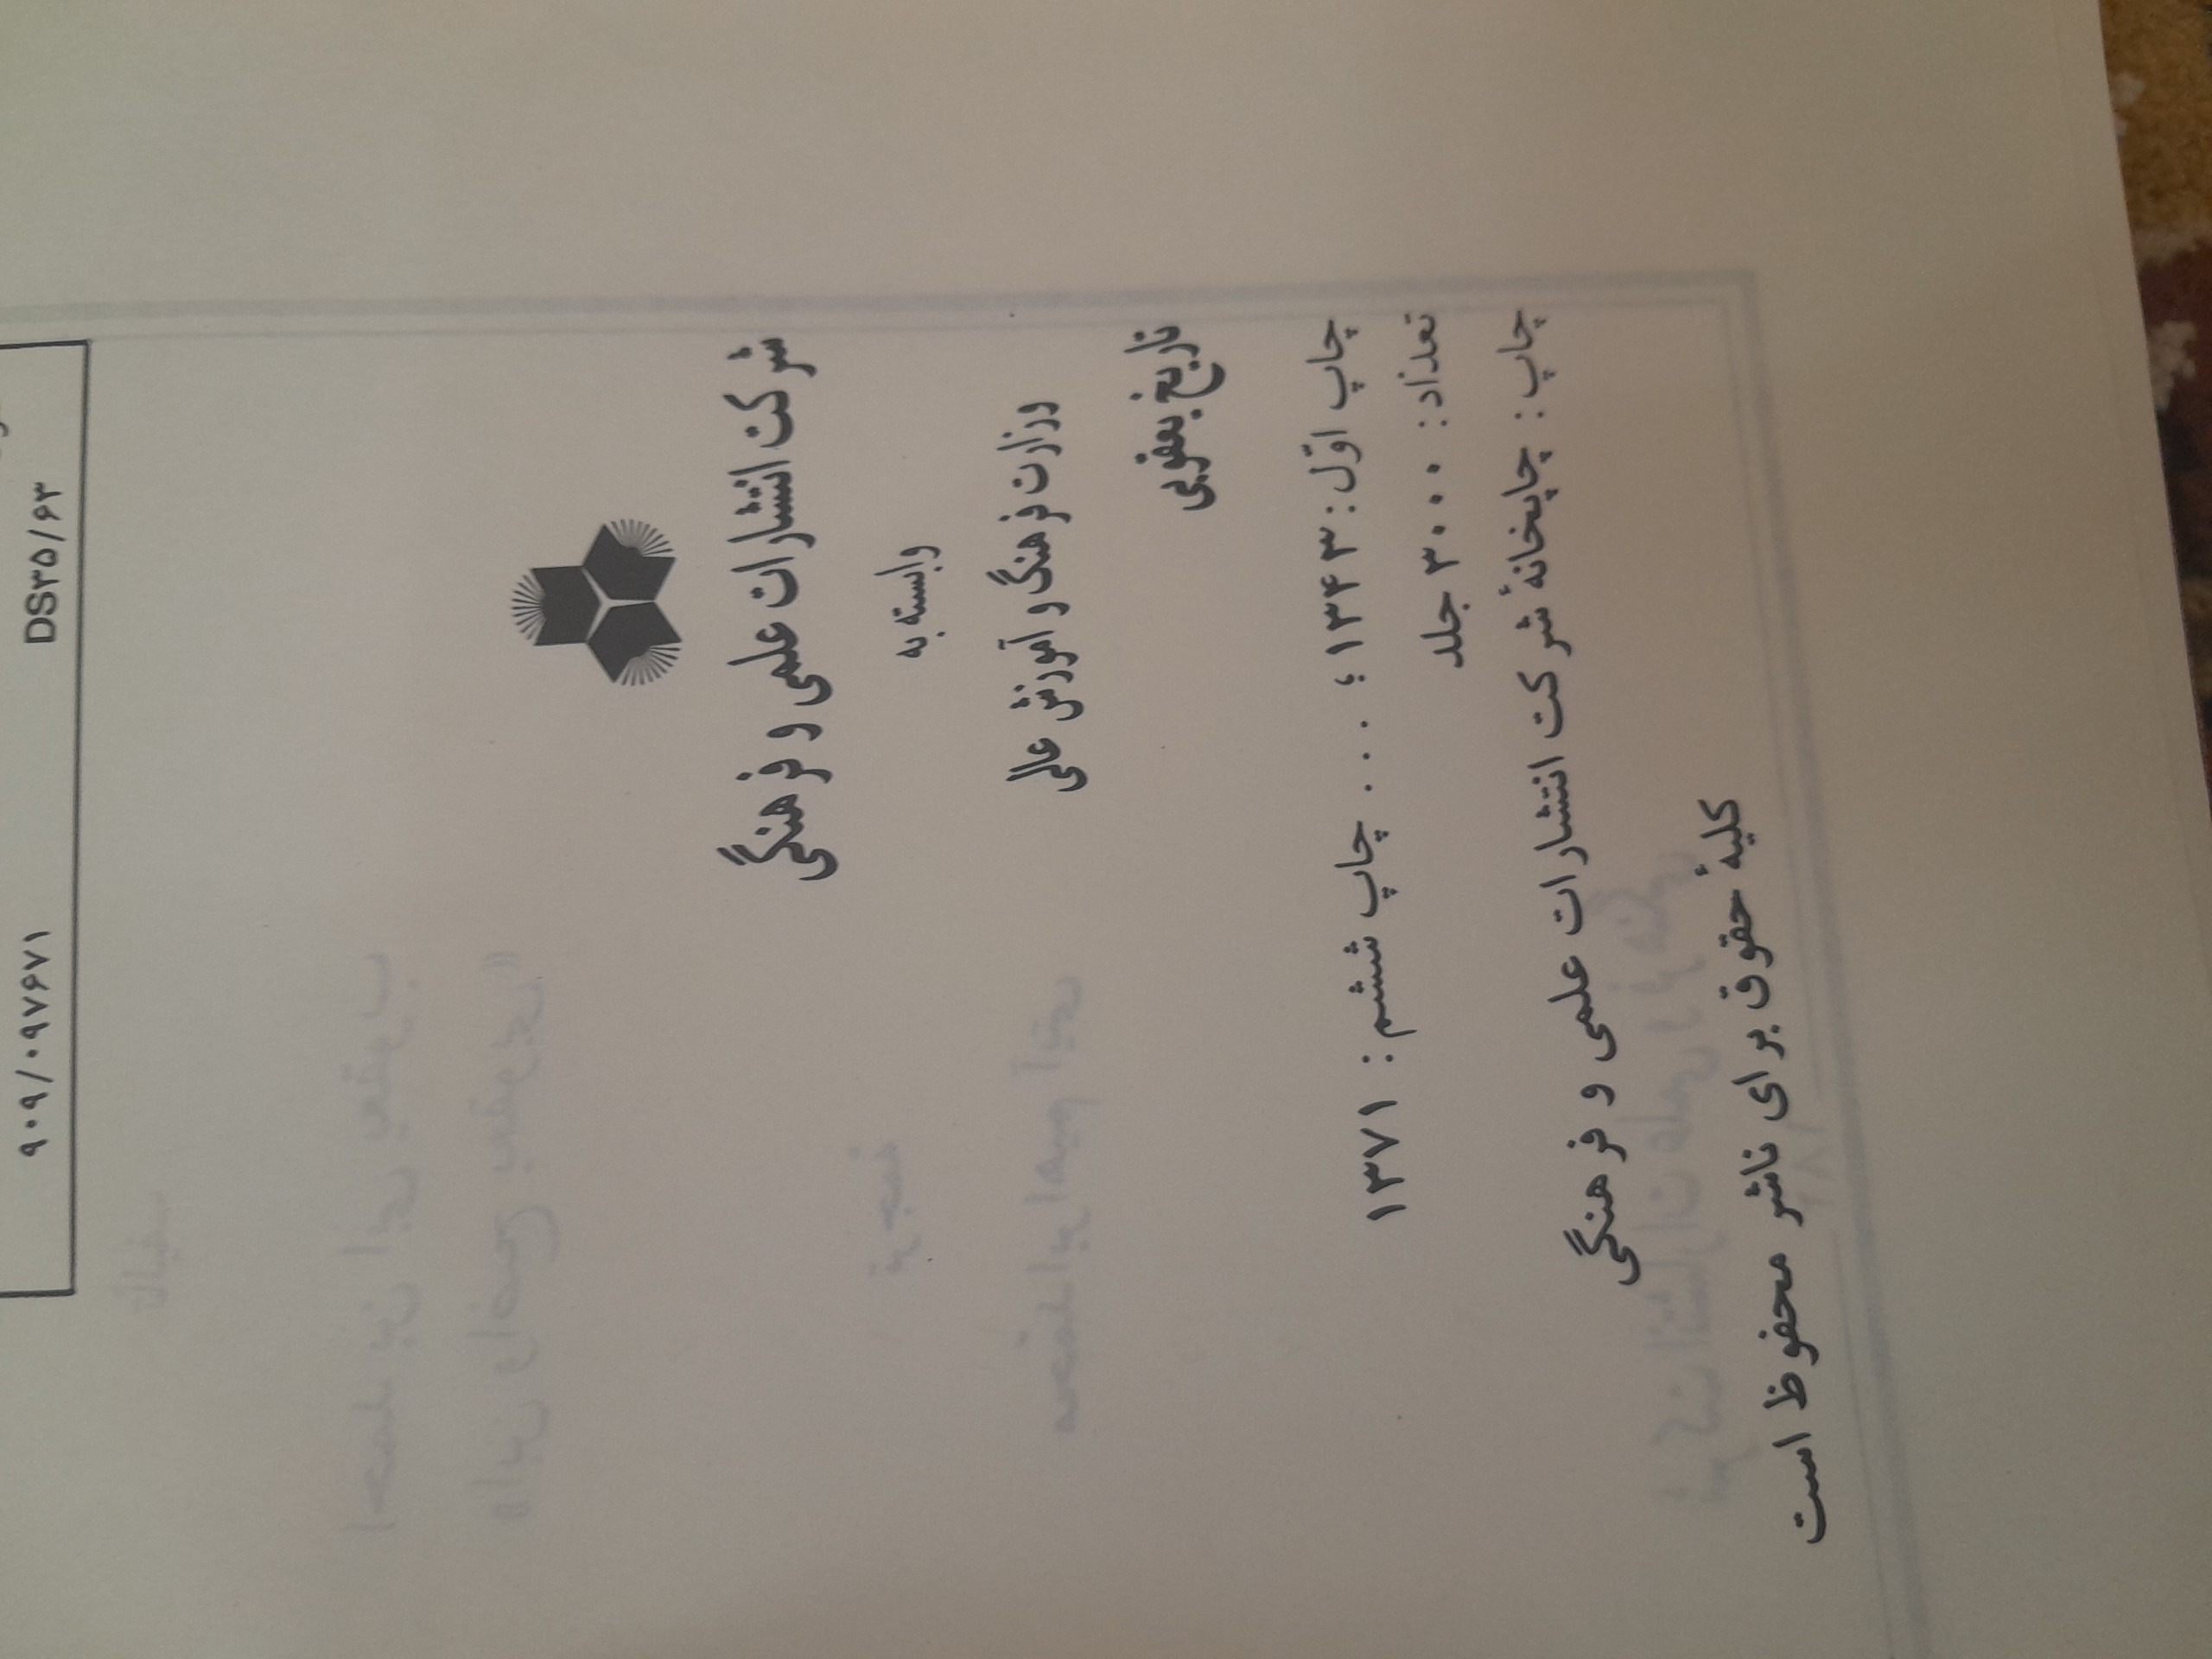 DS۳۵/۶۳
۹۰۹/۰۹۷۶۷۱
شرکت انتشارات علمی و فرهنگی
وابسته به
وزارت فرهنگ و آموزش عالی
تاریخ یعقوبی
چاپ اوّل: ۱۳۴۳؛ .... چاپ ششم: ۱۳۷۱
تعداد: ۳۰۰۰ جلد
چاپ: چاپخانهٔ شرکت انتشارات علمی و فرهنگی
کلیهٔ حقوق برای ناشر محفوظ است